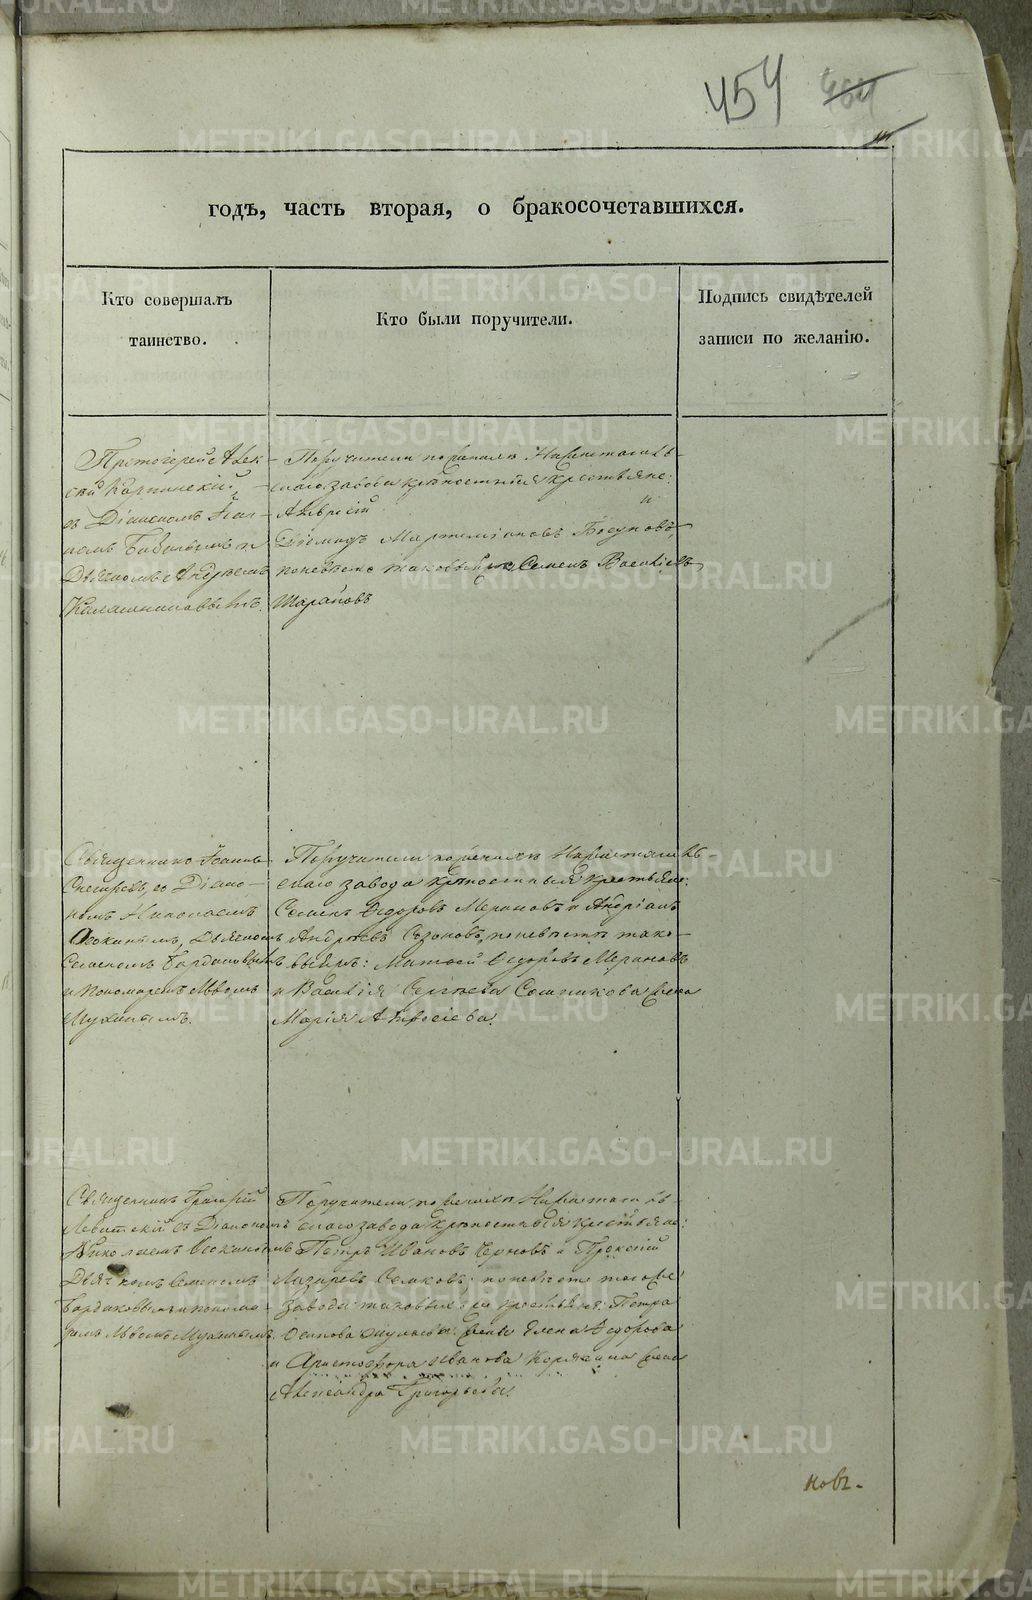 454 464
годъ, часть вторая, о бракосочетавшихся.
Кто совершалъ
таинство.
Кто были поручители.
Подпись свидѣтелей
записи по желанію.
Протоіерей Алек-
сѣй Карпинскій
съ Діакономъ
Дьячкомъ Андреемъ
Калашниковымъ.
Поручители по женихѣ Нижнетагиль-
скаго завода крѣпостныя крестьяне:
и
Діомидъ Мартеміановъ
по невѣстѣ таковый же Семенъ Василіевъ
Шараповъ
Священникъ Іоаннъ
съ Діако-
номъ Николаемъ
Осокинымъ, Дьячкомъ
Семеномъ Бардаковымъ
и Пономаремъ Львомъ
Мухинымъ.
Поручители по женихѣ Нижнетагиль-
скаго завода крѣпостныя крестьяне:
Семенъ Ѳедоровъ и Андріанъ
Андреевъ по невѣстѣ тако-
выяжъ: Матвей Ѳедоровъ
и Василія Сергѣева Сотникова жена
Марія
Священникъ Григорій
Левитскій съ Діакономъ
Николаемъ Осокинымъ
Дьячкомъ Семеномъ
Бардаковымъ и понома-
ремъ Львомъ Мухинымъ.
Поручители по женихѣ Нижнетагиль-
скаго завода крѣпостныя крестьяне:
Петръ Ивановъ Черновъ и
Лазаревъ по невѣстѣ тогоже
завода таковыяже крестьяне: Петра
Осипова жена Елена Ѳедорова
и Иванова жена
Александра Григорьева.
новъ.
METRIKI.GASO-URAL.RU